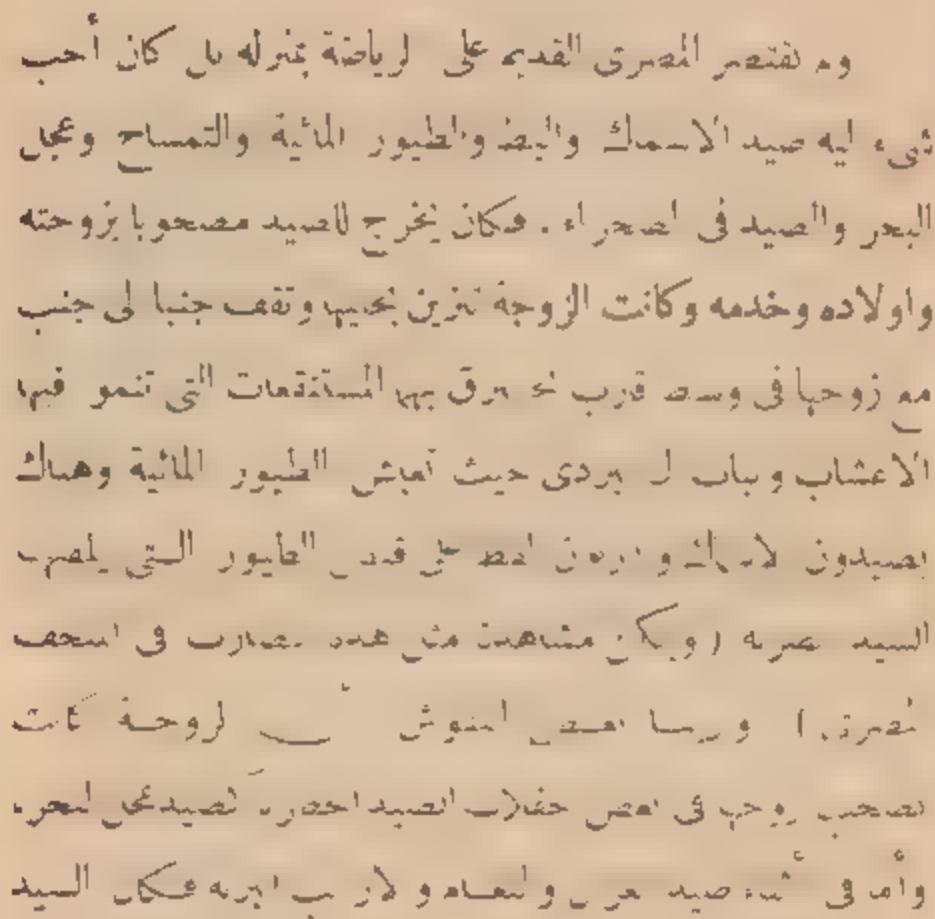 ولم يقتصر المصرى القديم على الرياضة بمنزله بل كان أحب
شىء اليه صيد الاسماك والبط والطيور المائية والتمساح وعجل
البحر والصيد فى الصحراء . فكان يخرج للصيد مصحوبا بزوجته
واولاده وخدمه وكانت الزوجة تتزين بحليها وتقف جنبا الى جنب
مع زوجها فى وسط قارب يخترق بهما المستنقعات التى تنمو فيها
الاعشاب ونبات البردى حيث تعيش الطيور المائية وهناك
يصيدون الاسماك ويدربون القط على قنص الطيور التى يصيب
السيد ( ويمكن مشاهدة مثل هذه المضارب فى المتحف
المصرى ) النقوش الزوجة كانت
تصحب زوجها فى بعض حفلات الصيد لصيد عجل البحر .
وأما فى أثناء صيد والنعام والارانب البرية فكان السيد